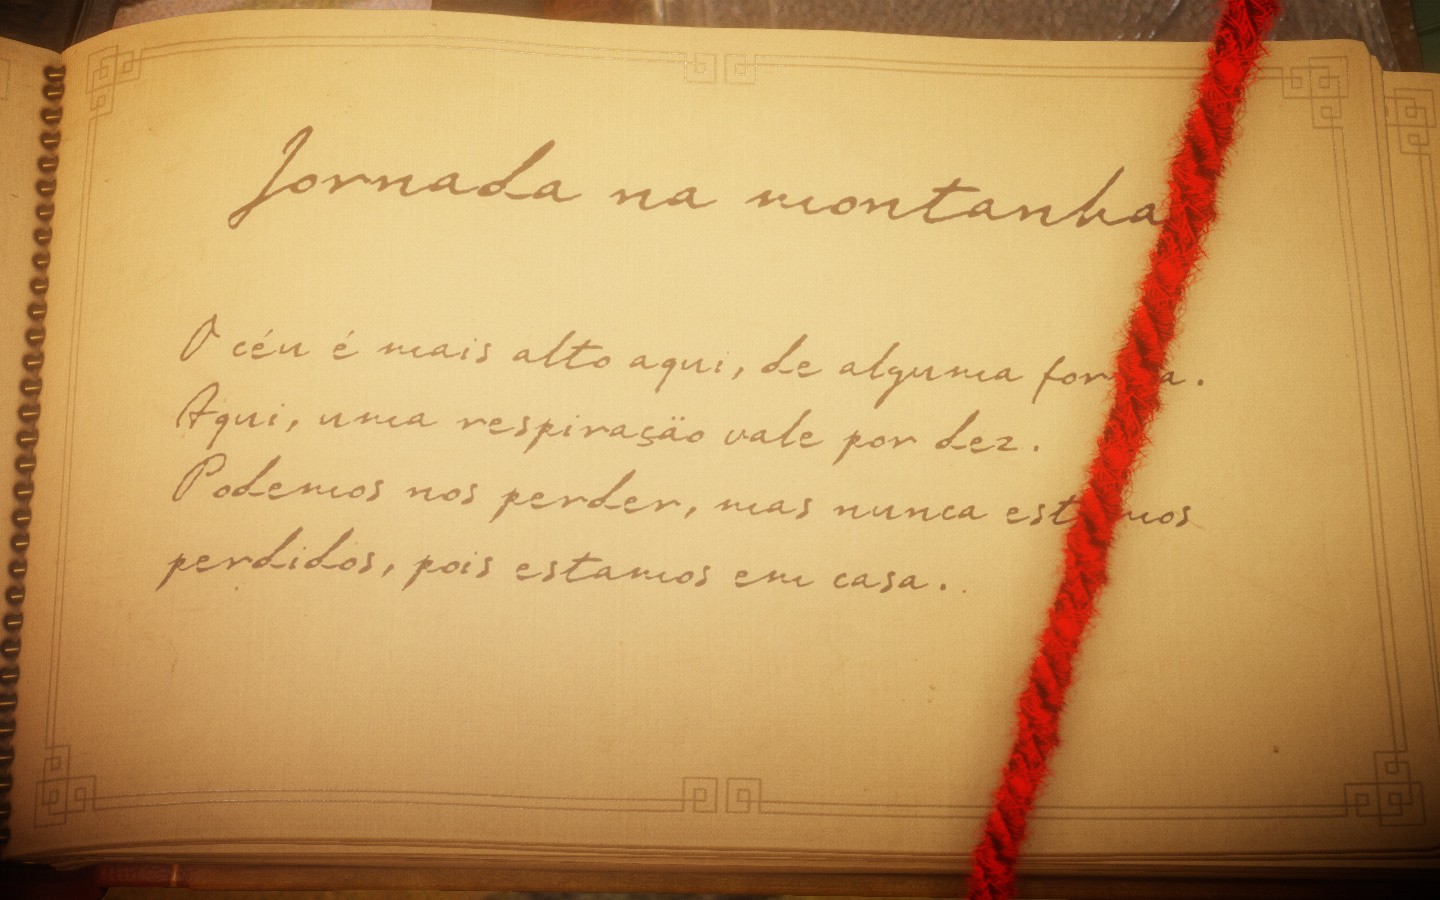 Jornada na montanha
O céu é mais alto aqui, de alguma forma.
Aqui, uma respiração vale por dez.
Podemos nos perder, mas nunca estamos
perdidos, pois estamos em casa.